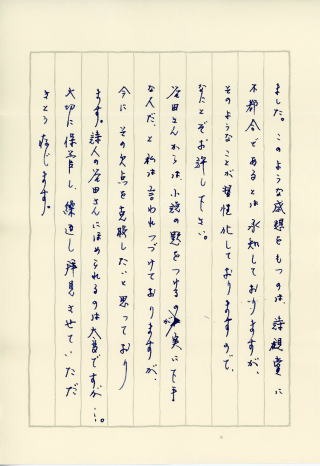 ました。このような感想をもつのは、詩親賞に
不都合であるとは承知しておりますが、
そのようなことが習性化しておりますので、
なにとぞお許し下さい。
谷田さんからは小説の点をつけるのが実に下手
な人だ、と私は言われつづけておりますが、
今に その欠点を克服したいと思っており
ます。詩人の谷田さんにほめられるのは大変ですが…。
大切に保管し、繰返し拝見させていただ
きとう存じます。